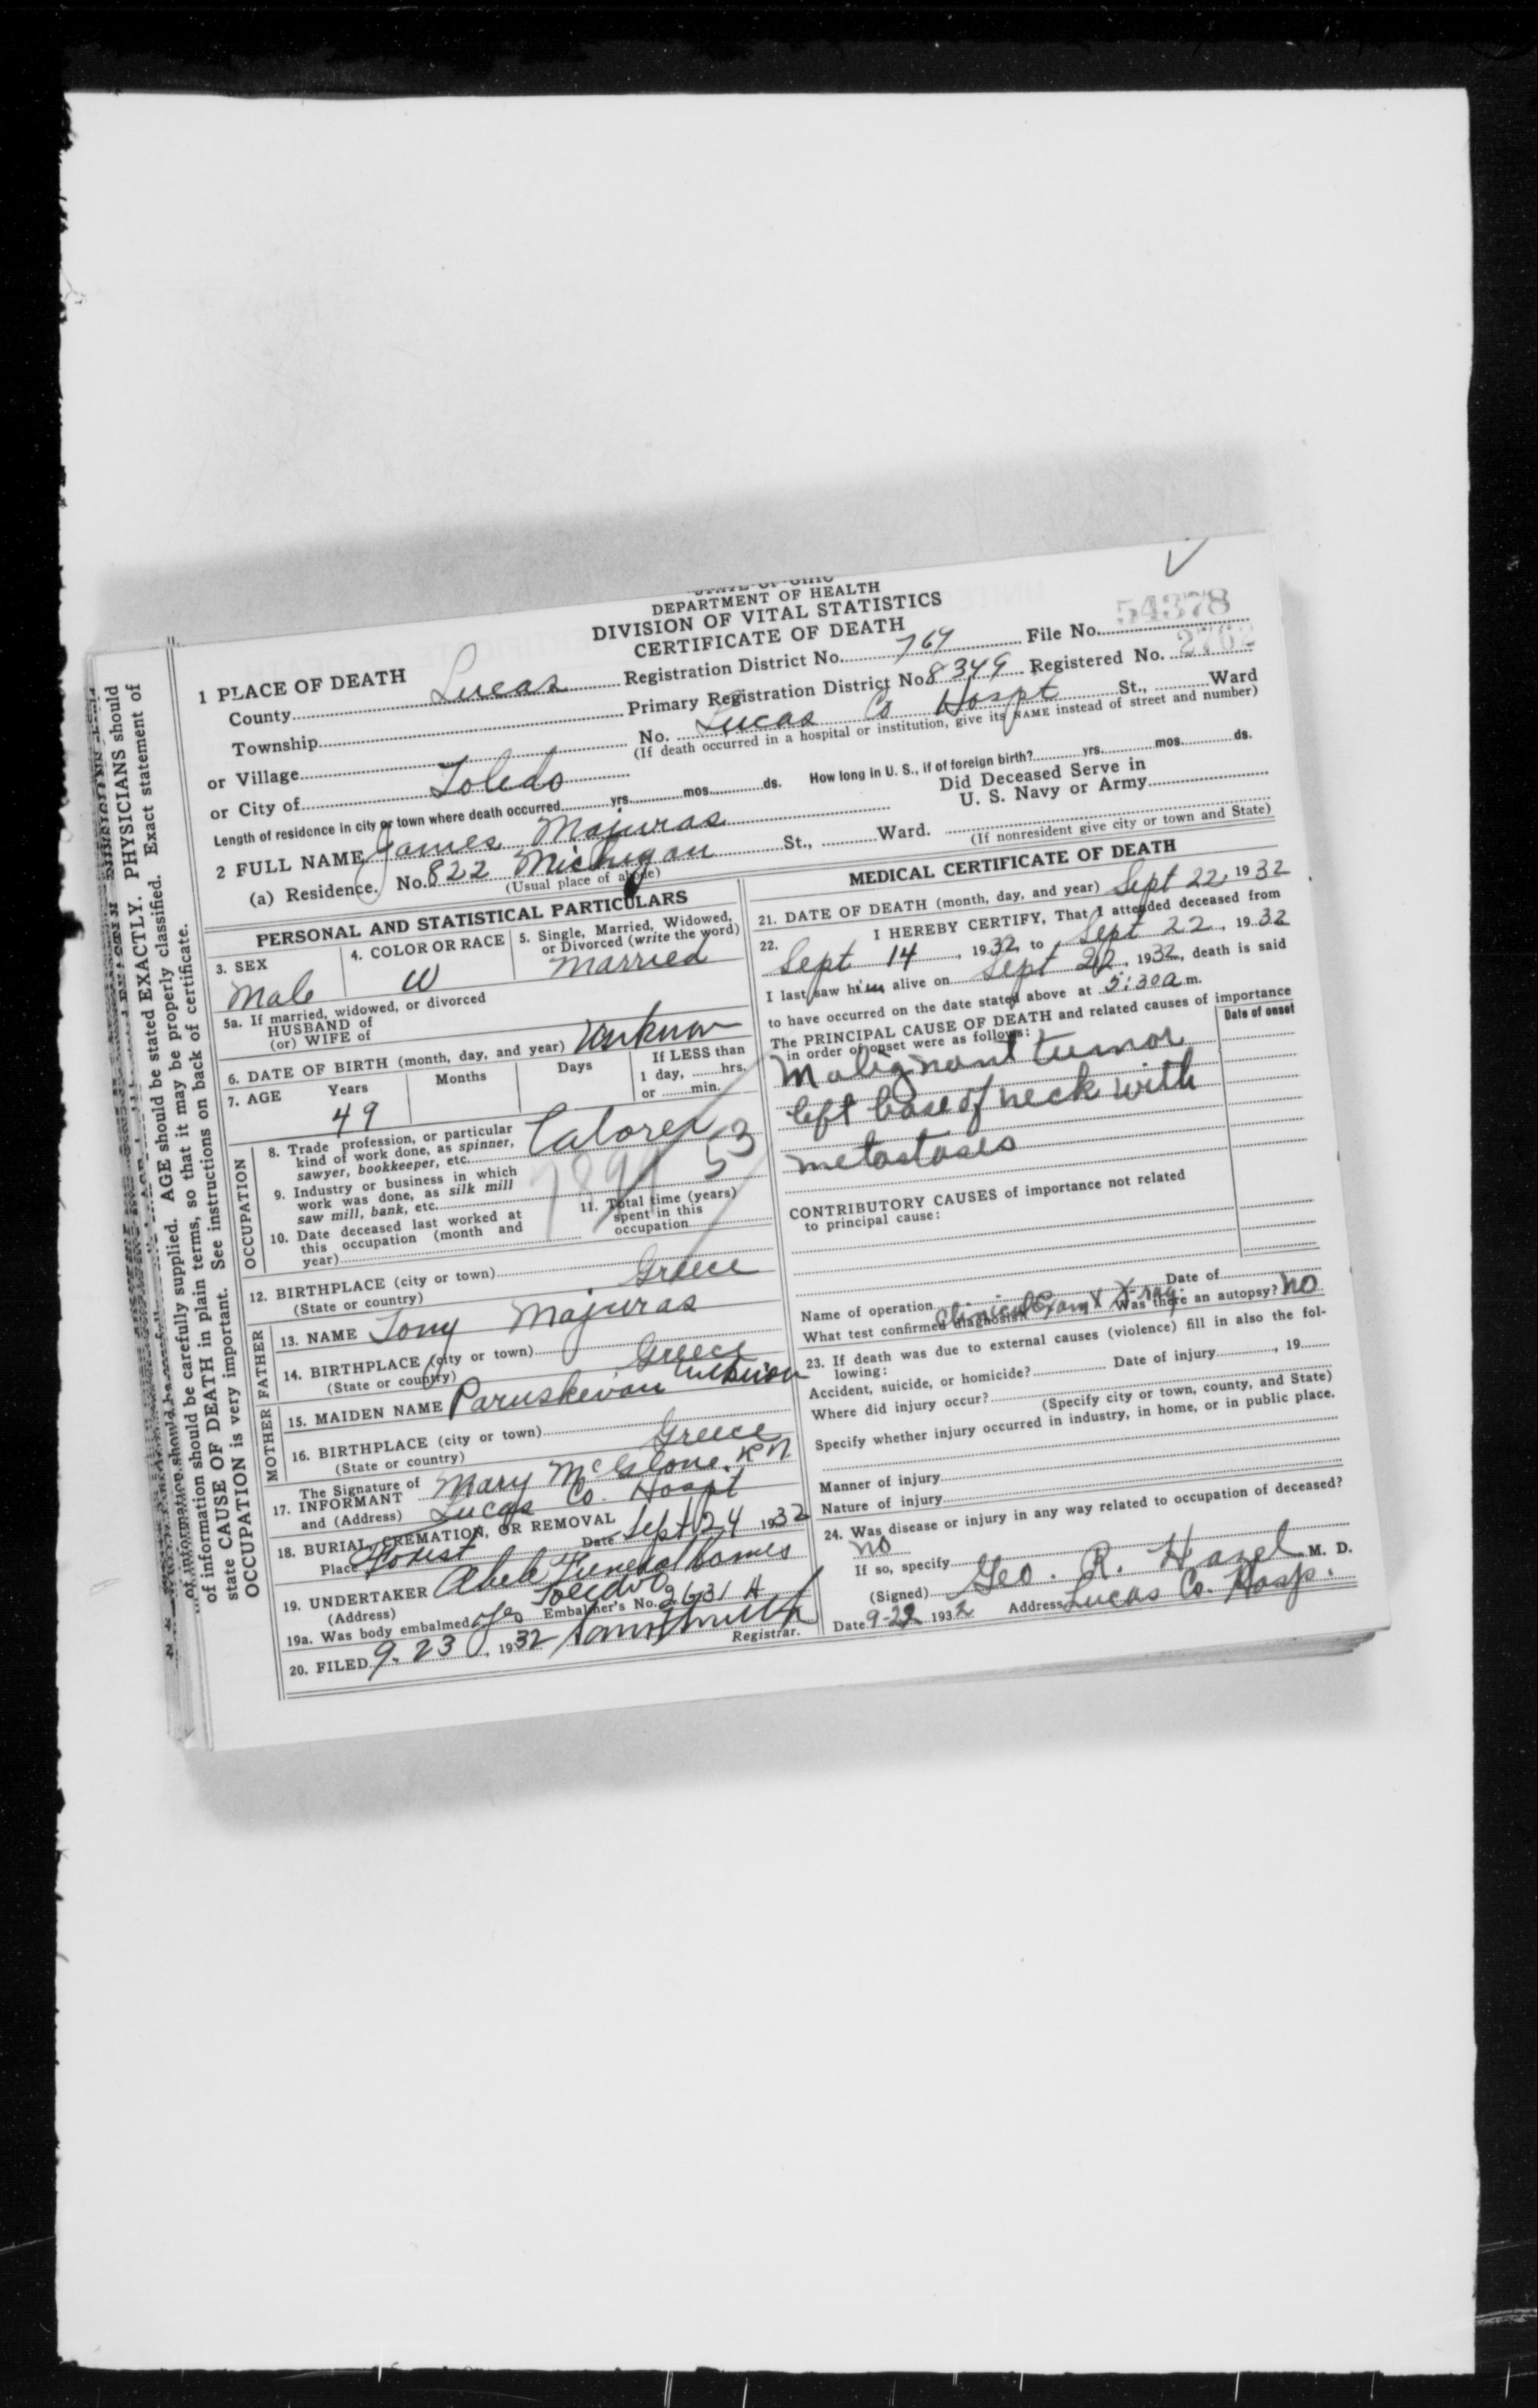 STATE OF OHIO
DEPARTMENT OF HEALTH
DIVISION OF VITAL STATISTICS
CERTIFICATE OF DEATH
1 PLACE OF DEATH
County Lucas Registration District No. 769 File No. 54378
Township Primary Registration District No. 8349 Registered No. 2762
or Village No. Lucas Co Hospt St., Ward
(If death occurred in a hospital or institution, give its NAME instead of street and number)
or City of Toledo
Length of residence in city or town where death occurred yrs. mos. ds. How long in U. S., if of foreign birth? yrs. mos. ds.
2 FULL NAME James Majuras Did Deceased Serve in
U. S. Navy or Army
(a) Residence. No. 822 Michigan St., Ward.
(Usual place of abode) (If nonresident give city or town and State)
PERSONAL AND STATISTICAL PARTICULARS
3. SEX
Male
4. COLOR OR RACE
W
5. Single, Married, Widowed,
or Divorced (write the word)
Married
5a. If married, widowed, or divorced
HUSBAND of
(or) WIFE of
6. DATE OF BIRTH (month, day, and year) Unknown
7. AGE Years Months Days If LESS than
1 day, hrs.
or min.
49
OCCUPATION
8. Trade profession, or particular
kind of work done, as spinner,
sawyer, bookkeeper, etc. Laborer
9. Industry or business in which
work was done, as silk mill
saw mill, bank, etc.
53
10. Date deceased last worked at
this occupation (month and
year)
11. Total time (years)
spent in this
occupation
12. BIRTHPLACE (city or town)
(State or country) Greece
FATHER
13. NAME Tony Majuras
14. BIRTHPLACE (city or town)
(State or country) Greece
MOTHER
15. MAIDEN NAME Paruskevan
16. BIRTHPLACE (city or town)
(State or country) Greece
17. The Signature of
INFORMANT Mary McGlone. RN
and (Address) Lucas Co. Hospt
18. BURIAL, CREMATION, OR REMOVAL
Place Forest Date Sept 24 1932
19. UNDERTAKER Abele Funeral Homes
(Address) Toledo O
19a. Was body embalmed Yes Embalmer's No. 2631 A
20. FILED 9-23, 1932
Registrar.
MEDICAL CERTIFICATE OF DEATH
21. DATE OF DEATH (month, day, and year) Sept 22, 1932
22. I HEREBY CERTIFY, That I attended deceased from
Sept 14, 1932, to Sept 22, 1932
I last saw him alive on Sept 22, 1932, death is said
to have occurred on the date stated above at 5:30 a m.
The PRINCIPAL CAUSE OF DEATH and related causes of importance
in order of onset were as follows: Date of onset
Malignant tumor
left base of neck with
metastases
CONTRIBUTORY CAUSES of importance not related
to principal cause:
Name of operation Date of
What test confirmed diagnosis? Clinical Exam & X-ray. Was there an autopsy? no
23. If death was due to external causes (violence) fill in also the fol-
lowing:
Accident, suicide, or homicide? Date of injury , 19
Where did injury occur?
(Specify city or town, county, and State)
Specify whether injury occurred in industry, in home, or in public place.
Manner of injury
Nature of injury
24. Was disease or injury in any way related to occupation of deceased?
no
If so, specify
(Signed) Geo. R. Hazel M. D.
Date 9-22 1932 Address Lucas Co. Hosp.
of information should be carefully supplied. AGE should be stated EXACTLY. PHYSICIANS should
state CAUSE OF DEATH in plain terms, so that it may be properly classified. Exact statement of
OCCUPATION is very important. See instructions on back of certificate.